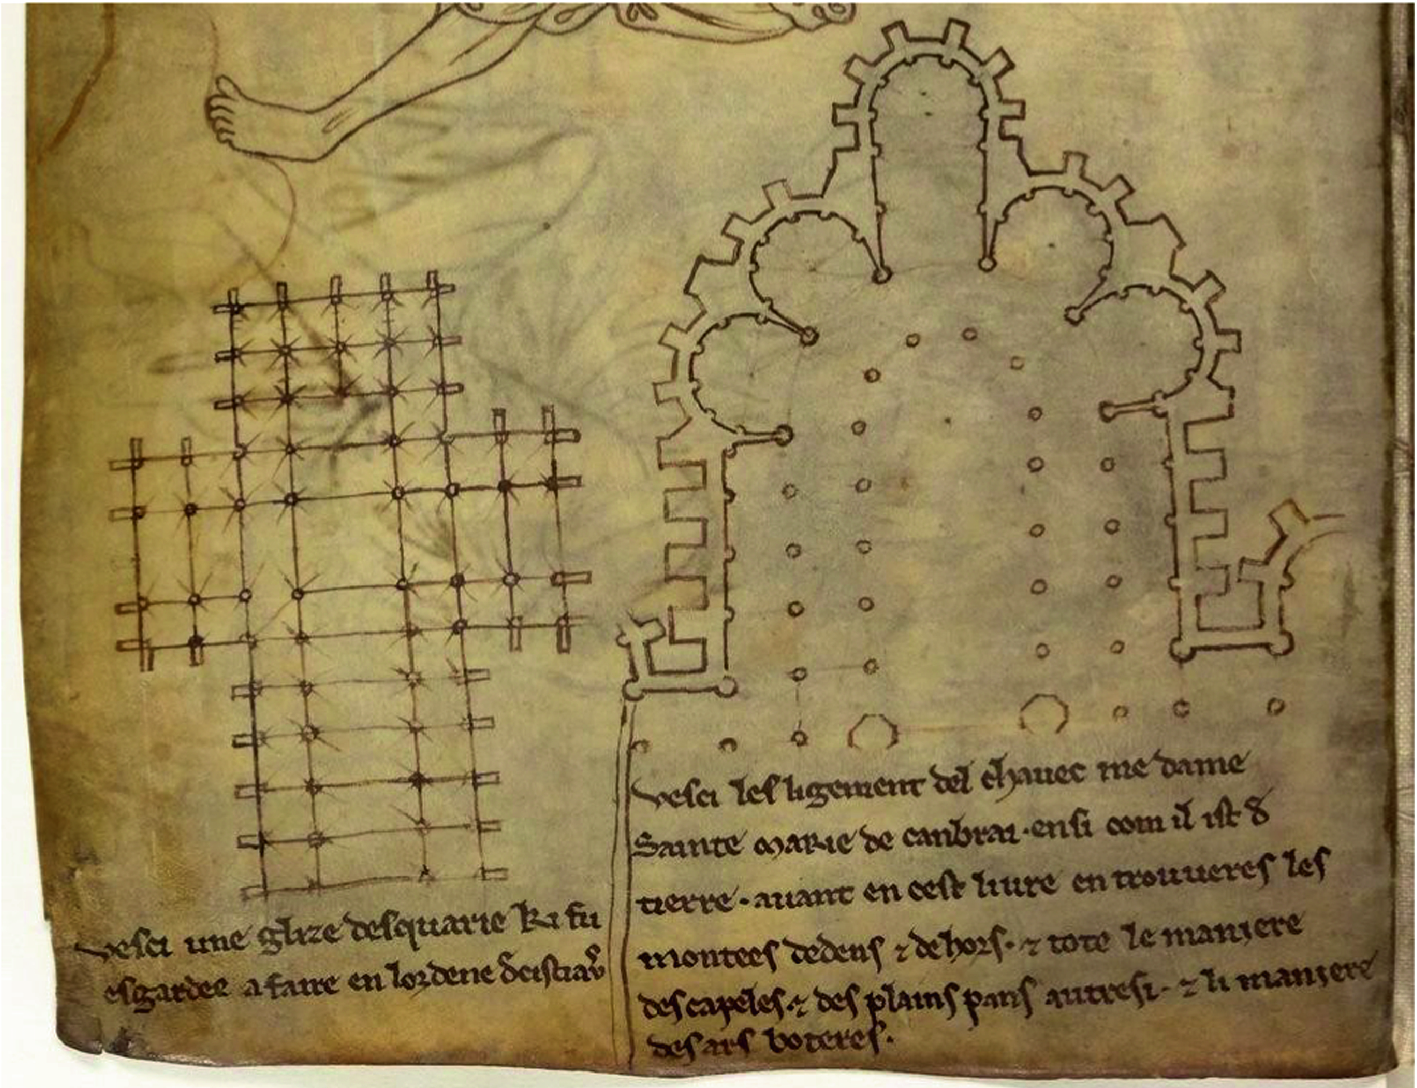 vesci une glize desquarie ki fu
esgardee a faire en lordene d cistiaus
vesci les ligement del chavec me dame
Sainte marie de canbrai · ensi com il ist d
tierre · avant en cest livre en trouveres les
montees dedens ⁊ dehors · ⁊ tote le maniere
des capeles · ⁊ des plains pans autresi · ⁊ li maniere
des ars boteres ·